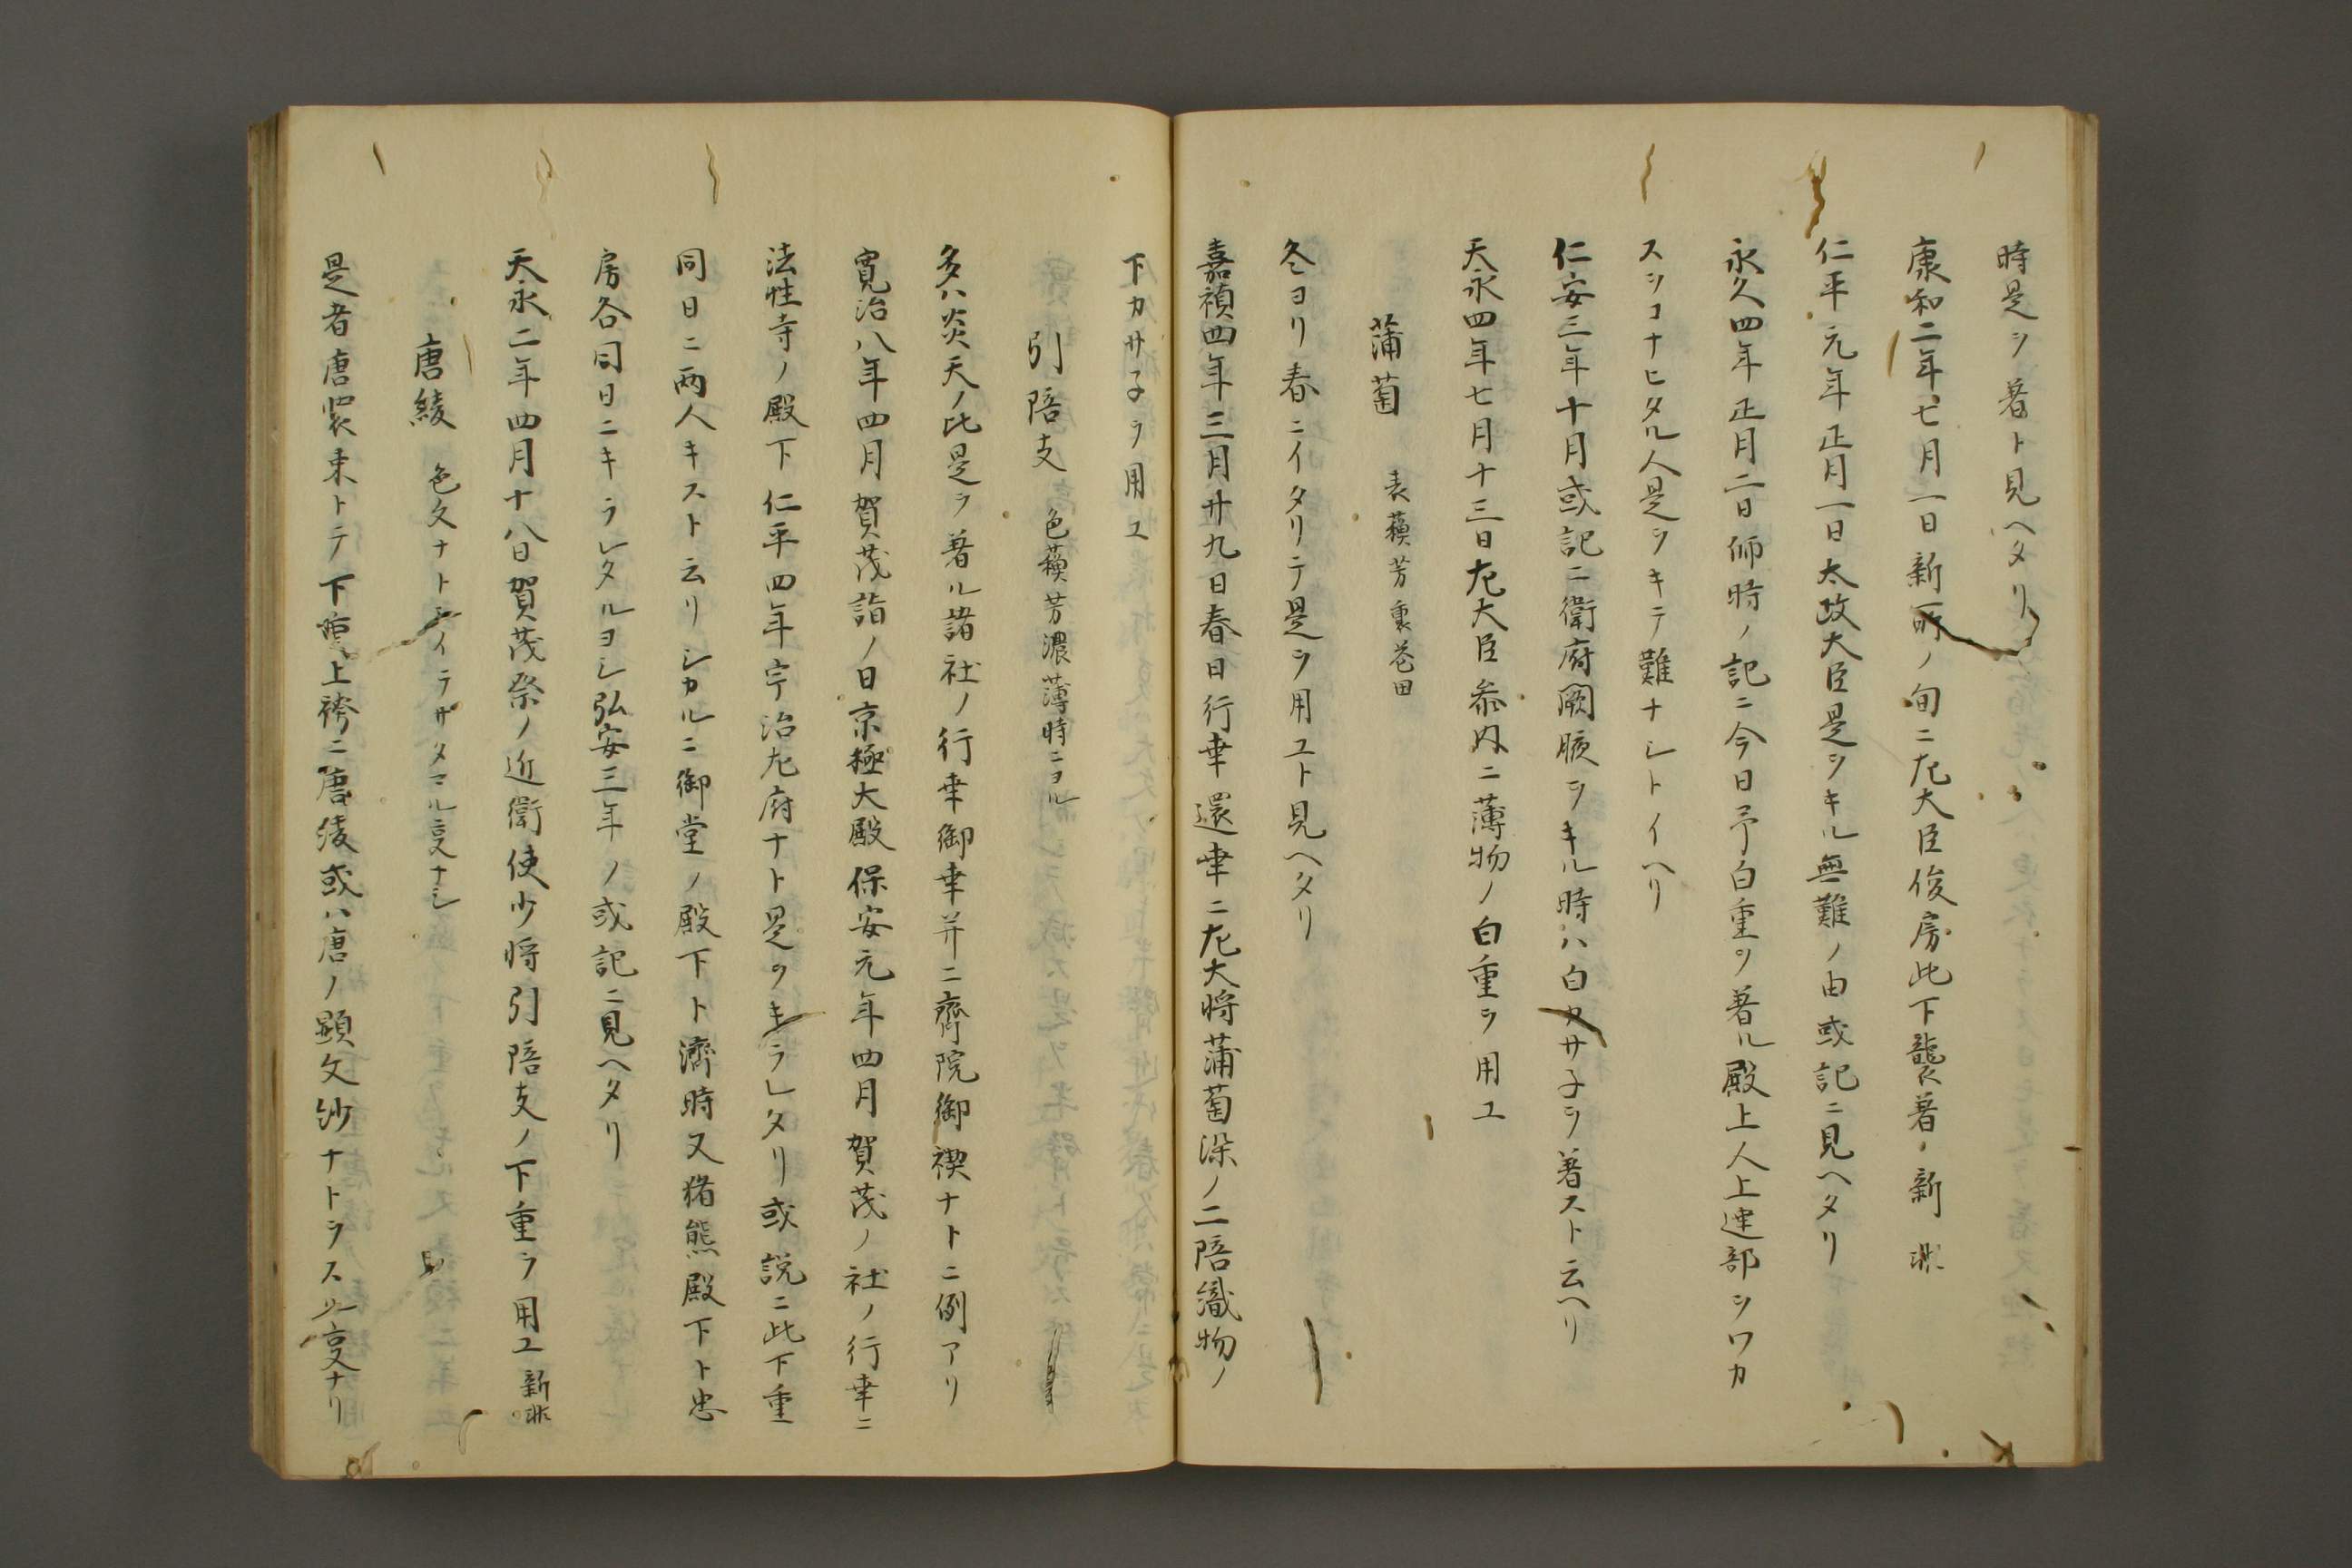 時是ヲ著ト見ヘタリ
康和二年七月一日新所ノ旬ニ左大臣俊房此下襲著ノ新
仁平元年正月一日太政大臣是ヲキル無難ノ由或記ニ見ヘタリ
永久四年正月二日師時ノ記ニ今日予白重ヲ著ル殿上人上達部ヲワカ
スヲコナヒタル人是ヲキテ難ナシトイヘリ
仁安三年十月或記ニ衛府闕腋ヲキル時ハ白カサ子ヲ著スト云ヘリ
天永四年七月十三日左大臣参内ニ薄物ノ白重ヲ用ユ
蒲萄 表蘇芳裏花田
冬ヨリ春ニイタリテ是ヲ用ユト見ヘタリ
嘉禎四年三月廿九日春日行幸還幸ニ左大将蒲萄染ノ二陪織物ノ
下カサ子ヲ用ユ
引陪支 色蘇芳濃薄時ニヨル
多ハ炎天ノ比是ヲ著ル諸社ノ行幸御幸并ニ齊院御禊ナトニ例アリ
寛治八年四月賀茂詣ノ日京極大殿保安元年四月賀茂ノ社ノ行幸ニ
法性寺ノ殿下仁平四年宇治左府ナト是ヲキラレタリ或説ニ此下重
同日ニ両人キスト云リシカルニ御堂ノ殿下ト濟時又猪熊殿下ト忠
房各同日ニキラレタルヨシ弘安三年ノ或記ニ見ヘタリ
天永二年四月十八日賀茂祭ノ近衛使少将引陪支ノ下重ヲ用ユ新
唐綾 色文ナトシイテサタマル㕝ナシ
是者唐装束トテ下重上袴ニ唐綾或ハ唐ノ顕文紗ナトヲスル㕝ナリ